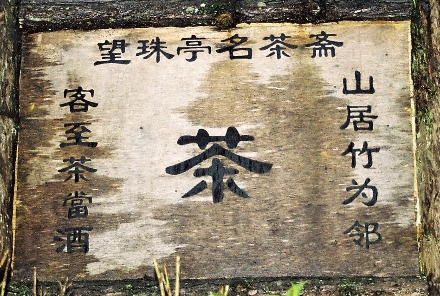 望珠亭名茶斋
山居竹为邻
茶
客至茶當酒